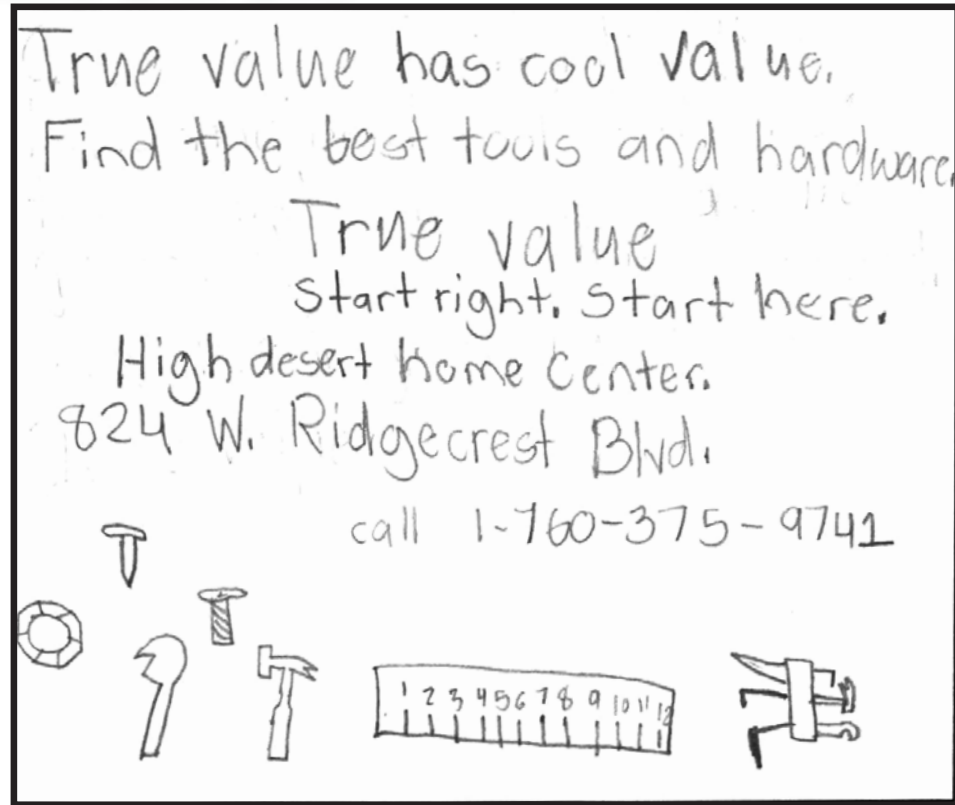 True value has cool value.
Find the best tools and hardware.
True value
Start right. Start here.
High desert home Center.
824 W. Ridgecrest Blvd.
call 1-760-375-9741
1 2 3 4 5 6 7 8 9 10 11 12